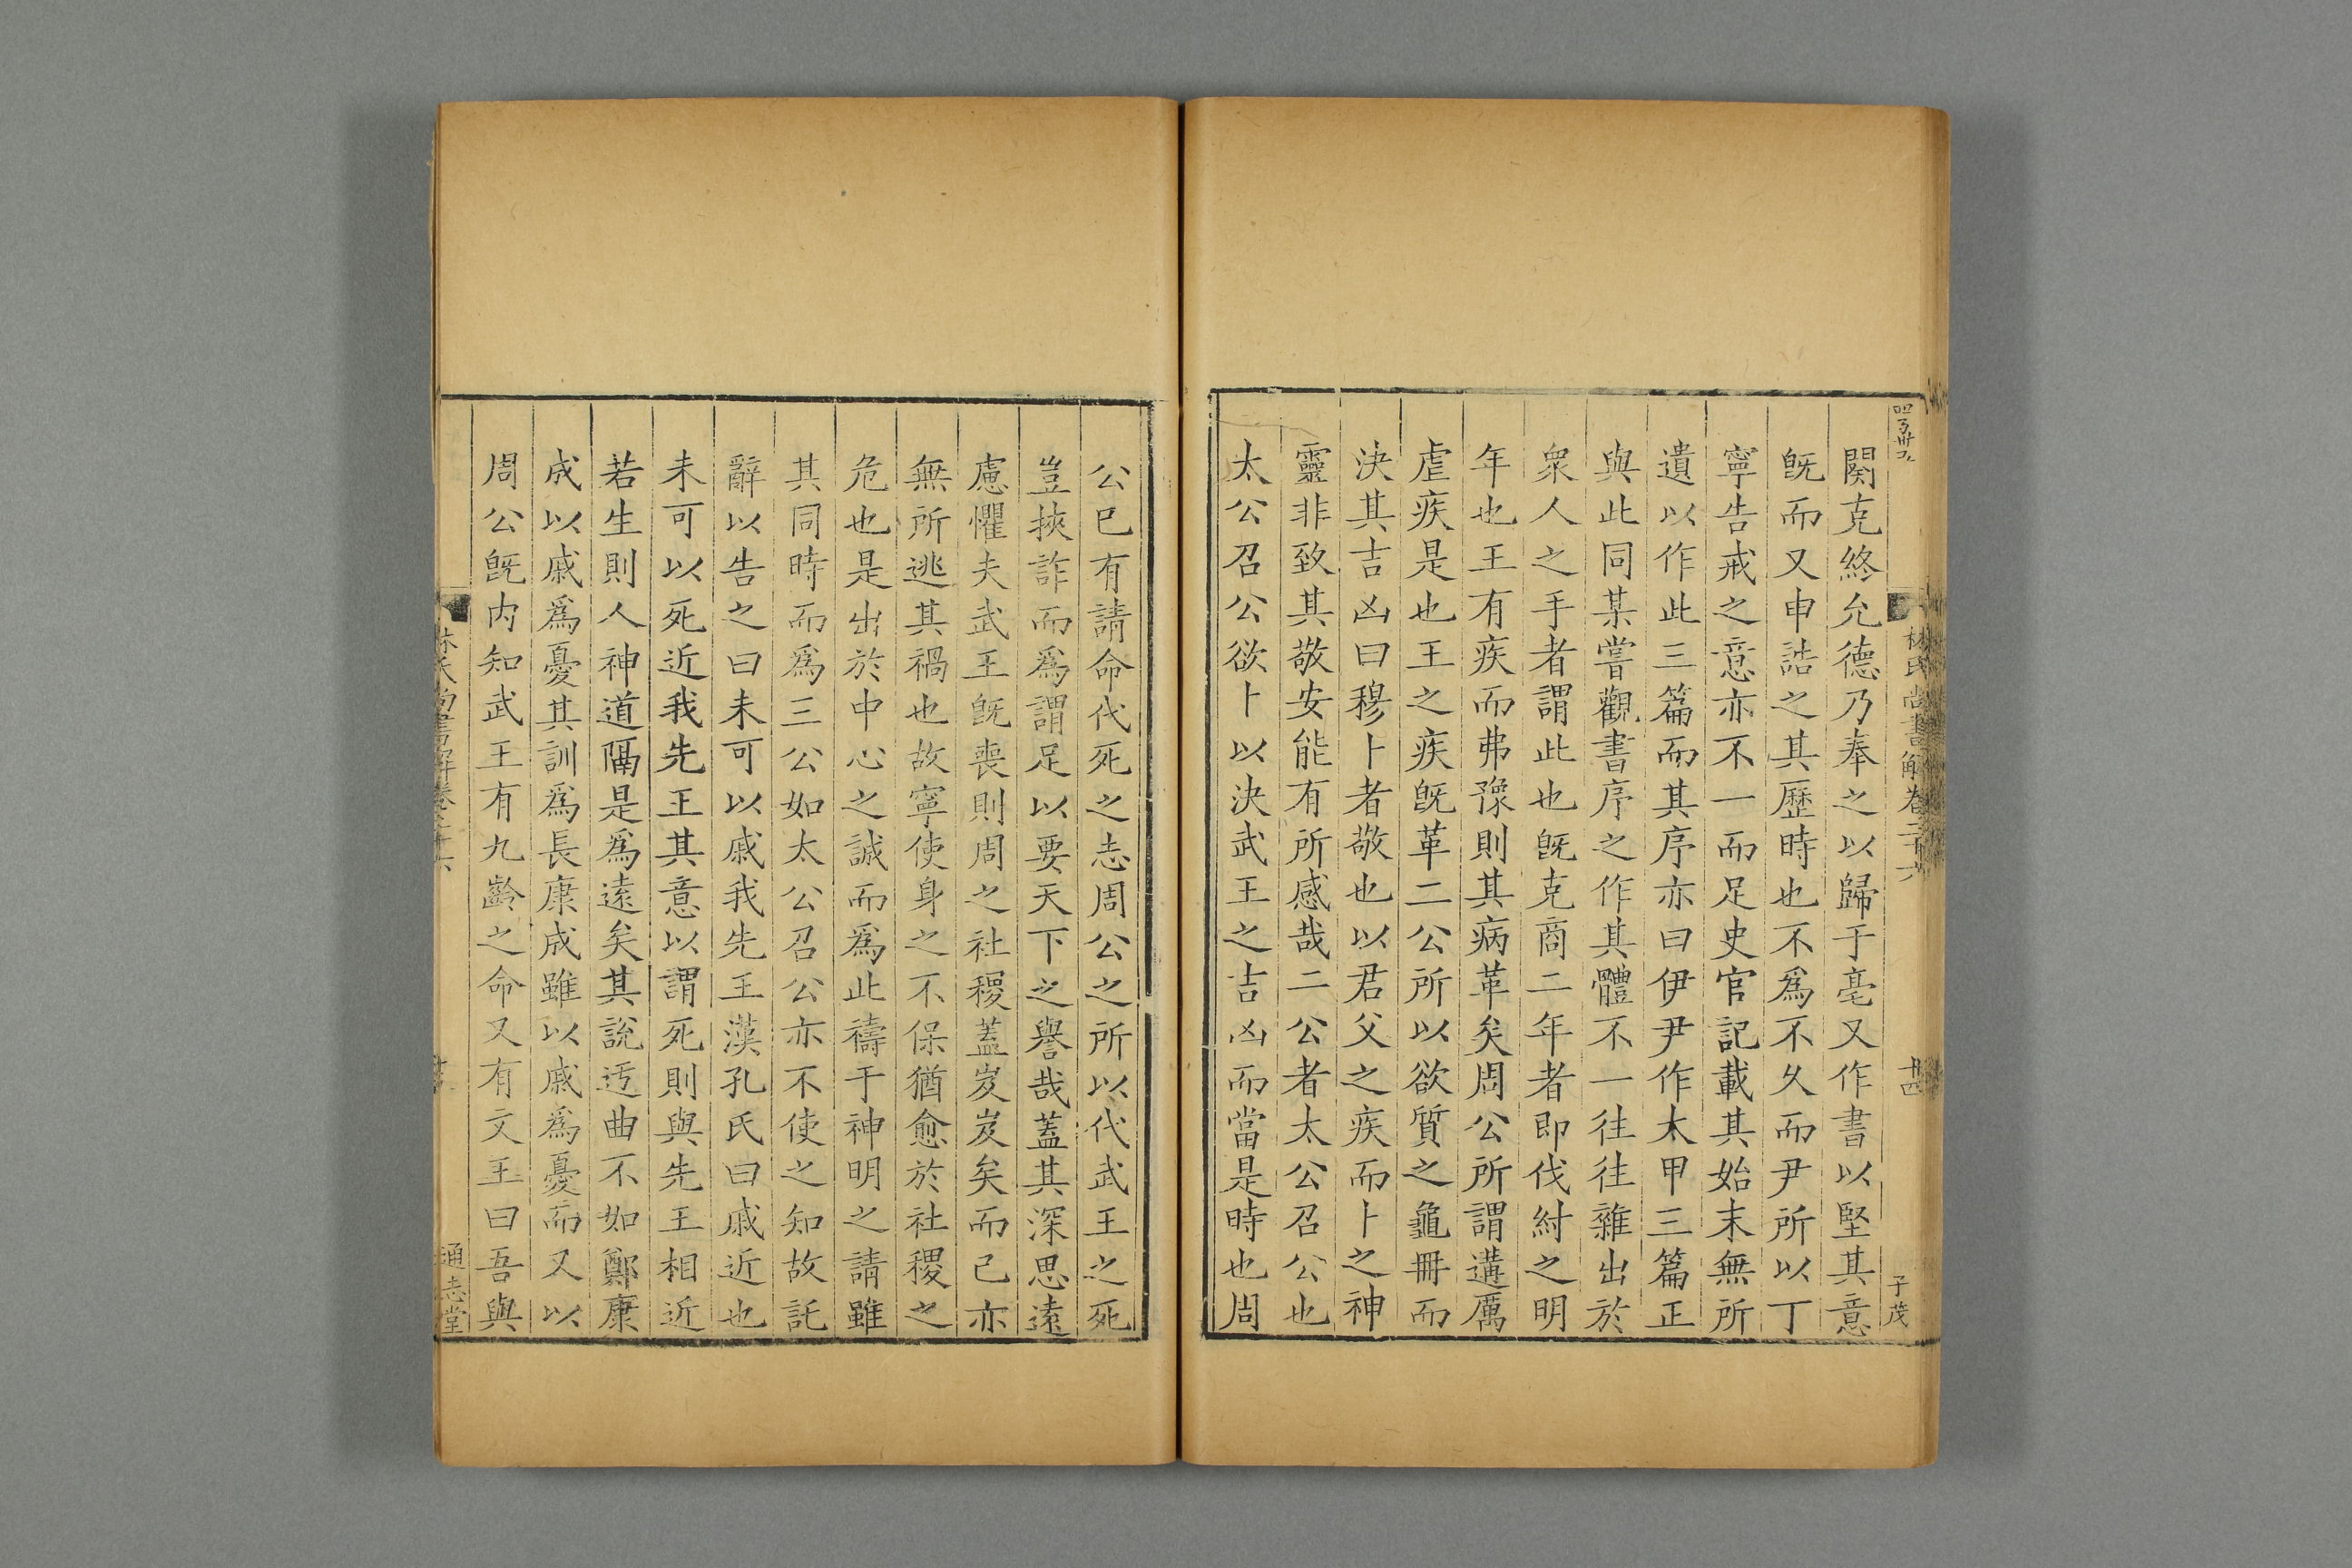 林氏尚書解卷二十六
廿四
子茂
闋克終允德乃奉之以歸于亳又作書以堅其意
旣而又申誥之其歷時也不爲不久而尹所以丁
寧告戒之意亦不一而足史官記載其始末無所
遺以作此三篇而其序亦曰伊尹作太甲三篇正
與此同某嘗觀書序之作其體不一往往雜出於
衆人之手者謂此也旣克商二年者即伐紂之明
年也王有疾而弗豫則其病革矣周公所謂遘厲
虐疾是也王之疾旣革二公所以欲質之龜冊而
決其吉凶曰穆卜者敬也以君父之疾而卜之神
靈非致其敬安能有所感哉二公者太公召公也
太公召公欲卜以決武王之吉凶而當是時也周
公已有請命代死之志周公之所以代武王之死
豈挾詐而爲謂足以要天下之譽哉蓋其深思遠
慮懼夫武王旣喪則周之社稷蓋岌岌矣而已亦
無所逃其禍也故寧使身之不保猶愈於社稷之
危也是出於中心之誠而爲此禱于神明之請雖
其同時而爲三公如太公召公亦不使之知故託
辭以告之曰未可以戚我先王漢孔氏曰戚近也
未可以死近我先王其意以謂死則與先王相近
若生則人神道隔是爲遠矣其說迃曲不如鄭康
成以戚爲憂其訓爲長康成雖以戚爲憂而又以
周公旣内知武王有九齡之命又有文王曰吾與
林氏尚書解卷二十六
通志堂